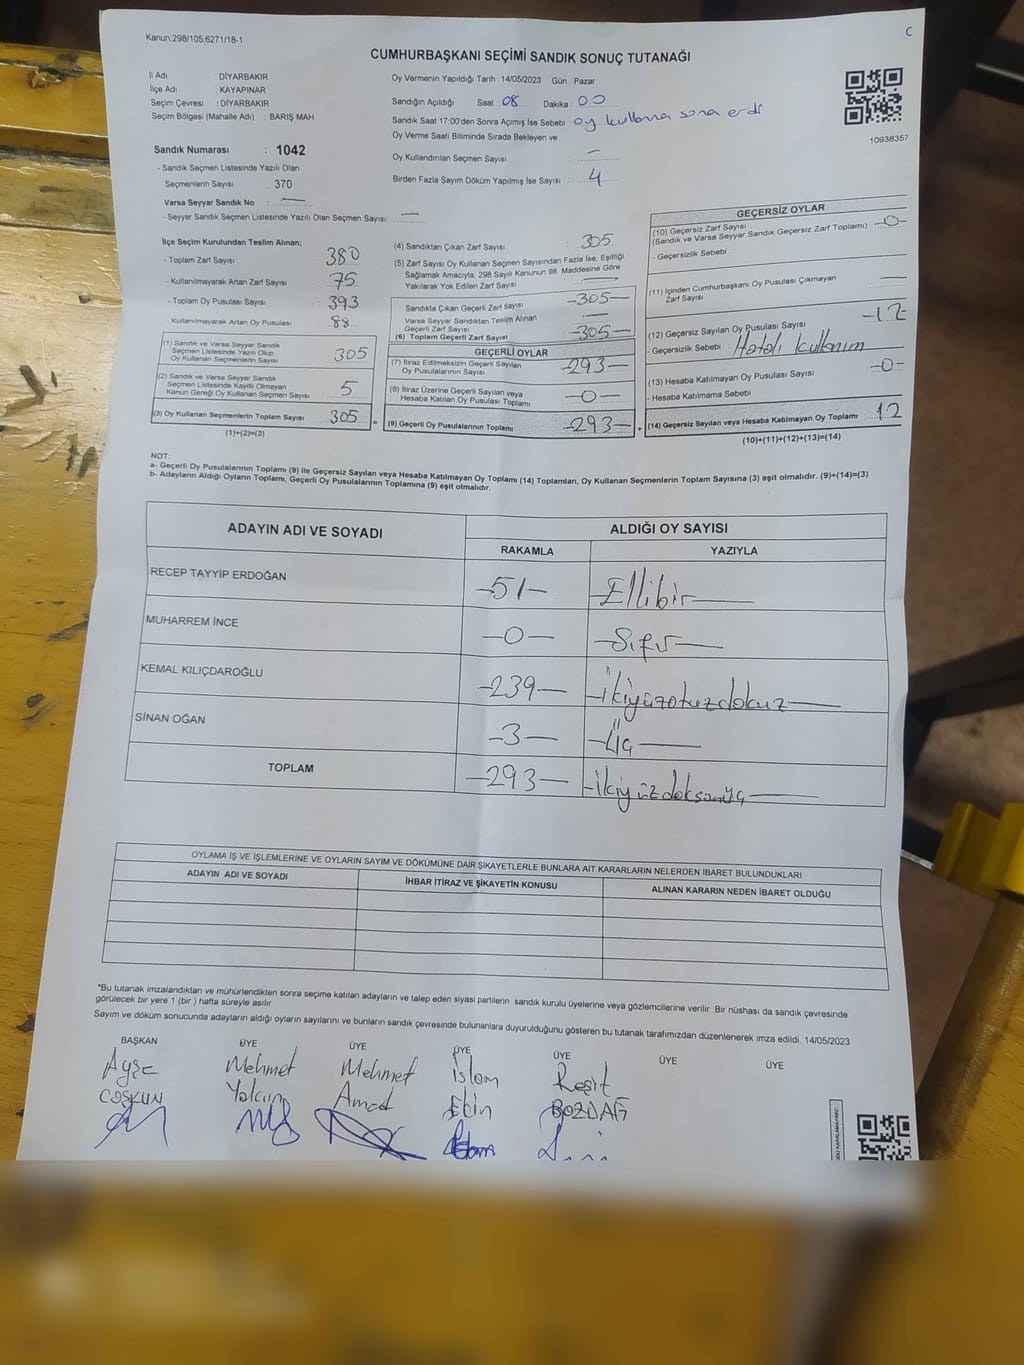 Kanun;298/105;6271/18-1
C
CUMHURBAŞKANI SEÇİMİ SANDIK SONUÇ TUTANAĞI
İl Adı : DİYARBAKIR
İlçe Adı : KAYAPINAR
Seçim Çevresi : DİYARBAKIR
Seçim Bölgesi (Mahalle Adı) : BARIŞ MAH
Sandık Numarası : 1042
- Sandık Seçmen Listesinde Yazılı Olan
Seçmenlerin Sayısı : 370
Varsa Seyyar Sandık No : —
- Seyyar Sandık Seçmen Listesinde Yazılı Olan Seçmen Sayısı: —
Oy Vermenin Yapıldığı Tarih : 14/05/2023 Gün Pazar
Sandığın Açıldığı Saat : 08 Dakika : 00
Sandık Saat 17:00'den Sonra Açımış İse Sebebi : oy kullanma sona erdi
Oy Verme Saati Bitiminde Sırada Bekleyen ve
Oy Kullandırılan Seçmen Sayısı : —
Birden Fazla Sayım Döküm Yapılmış İse Sayısı : 4
10938357
İlçe Seçim Kurulundan Teslim Alınan;
- Toplam Zarf Sayısı : 380
- Kullanılmayarak Artan Zarf Sayısı : 75
- Toplam Oy Pusulası Sayısı : 393
- Kullanılmayarak Artan Oy Pusulası : 88
(1) Sandık ve Varsa Seyyar Sandık
Seçmen Listesinde Yazılı Olup
Oy Kullanan Seçmenlerin Sayısı : 305
(2) Sandık ve Varsa Seyyar Sandık
Seçmen Listesinde Kayıtlı Olmayan
Kanun Gereği Oy Kullanan Seçmen Sayısı : 5
(3) Oy Kullanan Seçmenlerin Toplam Sayısı : 305
(1)+(2)=(3)
(4) Sandıktan Çıkan Zarf Sayısı : 305
(5) Zarf Sayısı Oy Kullanan Seçmen Sayısından Fazla İse, Eşitliği
Sağlamak Amacıyla; 298 Sayılı Kanunun 98. Maddesine Göre
Yakılarak Yok Edilen Zarf Sayısı : —
Sandıkta Çıkan Geçerli Zarf Sayısı —305—
Varsa Seyyar Sandıktan Teslim Alınan
Geçerli Zarf Sayısı : —
(6) Toplam Geçerli Zarf Sayısı : —305—
GEÇERLİ OYLAR
(7) İtiraz Edilmeksizin Geçerli Sayılan
Oy Pusulalarının Sayısı : —293—
(8) İtiraz Üzerine Geçerli Sayılan veya
Hesaba Katılan Oy Pusulası Toplamı : —0—
(9) Geçerli Oy Pusulalarının Toplamı : —293—
GEÇERSİZ OYLAR
(10) Geçersiz Zarf Sayısı : —0—
(Sandık ve Varsa Seyyar Sandık Geçersiz Zarf Toplamı)
- Geçersizlik Sebebi
(11) İçinden Cumhurbaşkanı Oy Pusulası Çıkmayan
Zarf Sayısı —
(12) Geçersiz Sayılan Oy Pusulası Sayısı : —12—
- Geçersizlik Sebebi : Hatalı kullanım
(13) Hesaba Katılmayan Oy Pusulası Sayısı : —0—
- Hesaba Katılmama Sebebi
(14) Geçersiz Sayılan veya Hesaba Katılmayan Oy Toplamı : 12
(10)+(11)+(12)+(13)=(14)
NOT:
a- Geçerli Oy Pusulalarının Toplamı (9) ile Geçersiz Sayılan veya Hesaba Katılmayan Oy Toplamı (14) Toplamları, Oy Kullanan Seçmenlerin Toplam Sayısına (3) eşit olmalıdır. (9)+(14)=(3)
b- Adayların Aldığı Oyların Toplamı, Geçerli Oy Pusulalarının Toplamına (9) eşit olmalıdır.
ADAYIN ADI VE SOYADI ALDIĞI OY SAYISI
RAKAMLA YAZIYLA
RECEP TAYYİP ERDOĞAN —51— —Ellibir—
MUHARREM İNCE —0— —Sıfır—
KEMAL KILIÇDAROĞLU —239— —ikiyüzotuzdokuz—
SİNAN OĞAN —3— —Üç—
TOPLAM —293— —ikiyüzdoksanüç—
OYLAMA İŞ VE İŞLEMLERİNE VE OYLARIN SAYIM VE DÖKÜMÜNE DAİR ŞİKAYETLERLE BUNLARA AİT KARARLARIN NELERDEN İBARET BULUNDUKLARI
ADAYIN ADI VE SOYADI İHBAR İTİRAZ VE ŞİKAYETİN KONUSU ALINAN KARARIN NEDEN İBARET OLDUĞU
*Bu tutanak imzalandıktan ve mühürlendikten sonra seçime katılan adayların ve talep eden siyasi partilerin sandık kurulu üyelerine veya gözlemcilerine verilir. Bir nüshası da sandık çevresinde
görülecek bir yere 1 (bir ) hafta süreyle asılır.
Sayım ve döküm sonucunda adayların aldığı oyların sayılarını ve bunların sandık çevresinde bulunanlara duyurulduğunu gösteren bu tutanak tarafımızdan düzenlenerek imza edildi. 14/05/2023
BAŞKAN ÜYE ÜYE ÜYE ÜYE ÜYE ÜYE
Ayşe Mehmet Mehmet İslam Reşit
COŞKUN Yalçın Amed Ekin BOZDAĞ